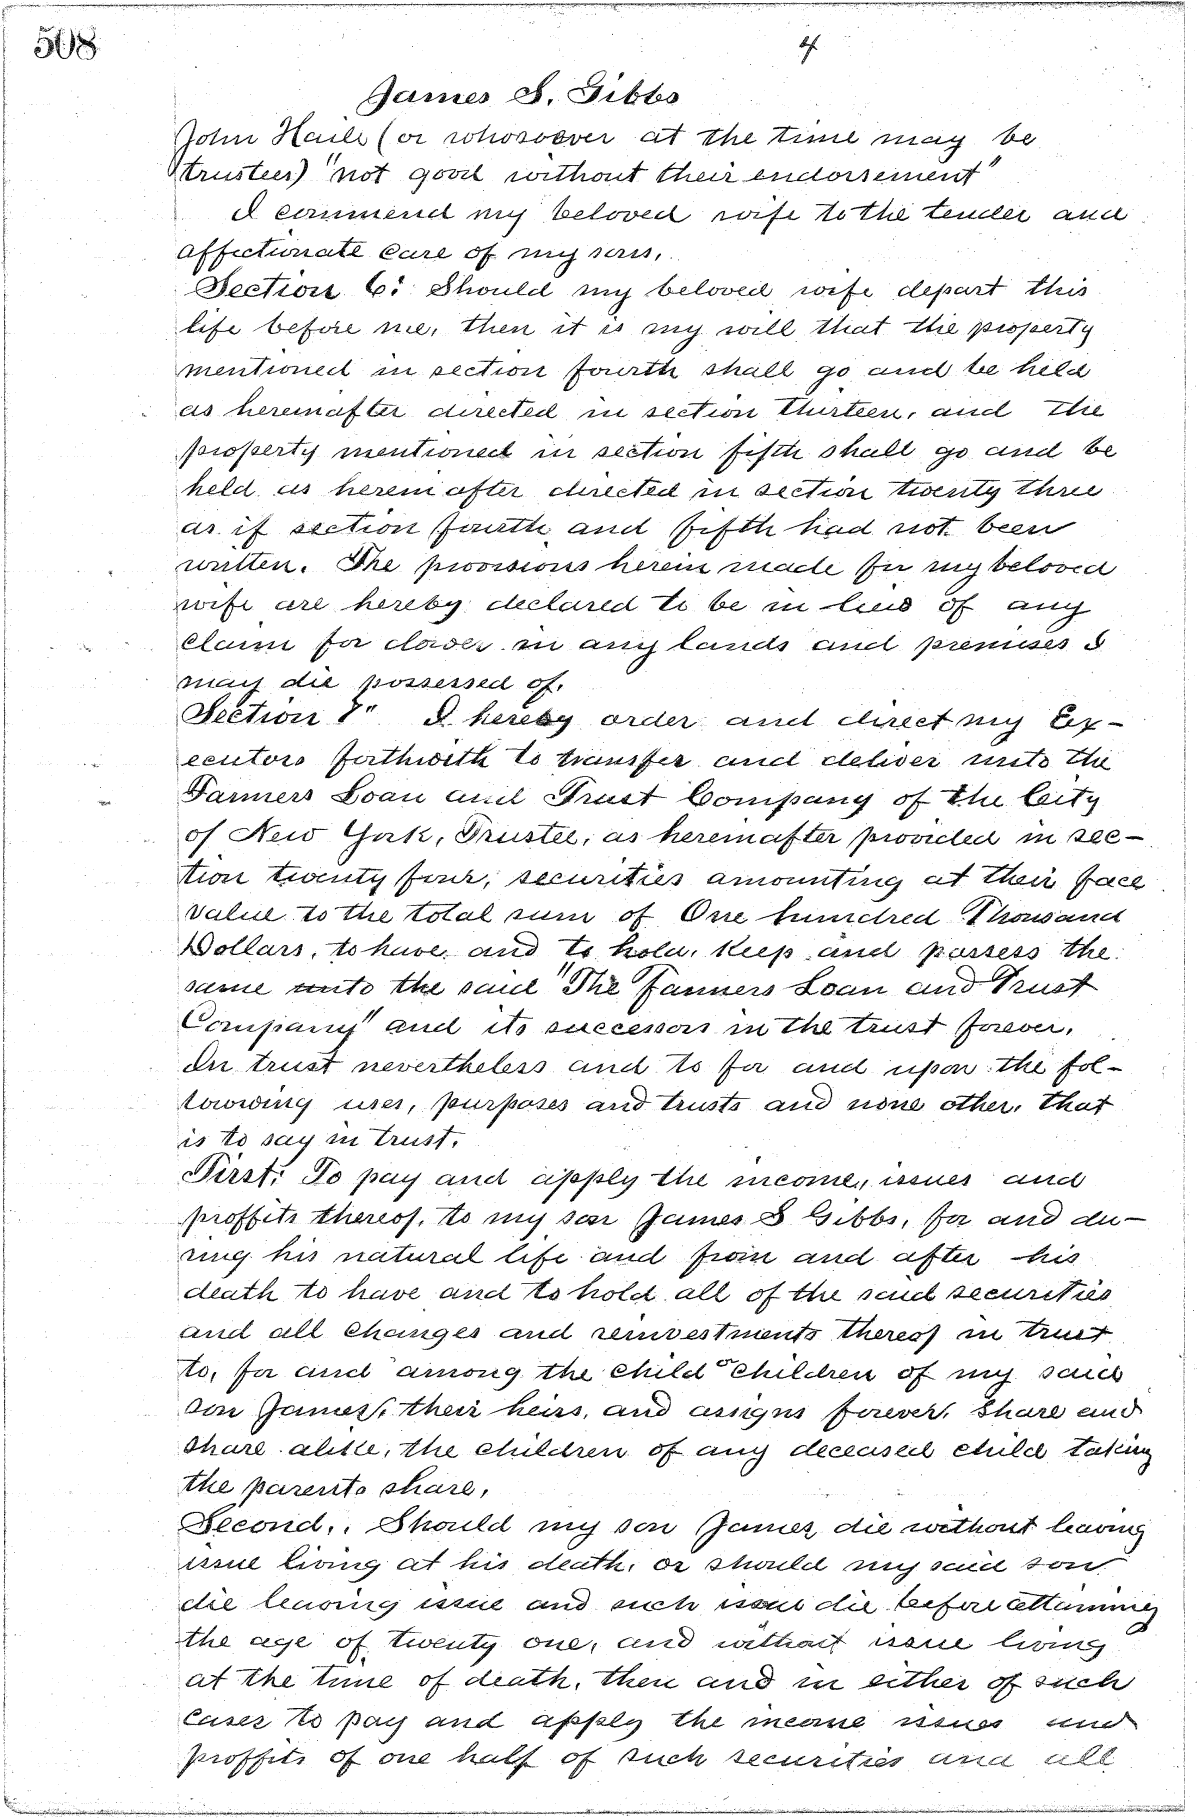 508
4
James S. Gibbs
John Haile (or whosoever at the time may be
trustees) "not good without their endorsement"
I commend my beloved wife to the tender and
affectionate care of my sons.
Section 6: Should my beloved wife depart this
life before me, then it is my will that the property
mentioned in section fourth shall go and be held
as hereinafter directed in section thirteen, and the
property mentioned in section fifth shall go and be
held as hereinafter directed in section twenty three
as if section fourth and fifth had not been
written. The provisions herein made for my beloved
wife are hereby declared to be in lieu of any
claim for dower in any lands and premises I
may die possessed of.
Section 7" I hereby order and direct my Ex-
ecutors forthwith to transfer and deliver unto the
Farmers Loan and Trust Company of the City
of New York, Trustee, as hereinafter provided in sec-
tion twenty four, securities amounting at their face
value to the total sum of One hundred Thousand
Dollars, to have and to hold, keep and possess the
same unto the said "The Farmers Loan and Trust
Company" and its successors in the trust forever.
In trust nevertheless and to for and upon the fol-
lowing uses, purposes and trusts and none other, that
is to say in trust.
First: To pay and apply the income, issues and
proffits thereof, to my son James S Gibbs, for and du-
ring his natural life and from and after his
death to have and to hold all of the said securities
and all changes and reinvestments thereof in trust
to, for and among the child or children of my said
son James, their heirs, and assigns forever, share and
share alike, the children of any deceased child taking
the parents share,
Second,. Should my son James die without leaving
issue living at his death, or should my said son
die leaving issue and such issue die before attaining
the age of twenty one, and without issue living
at the time of death, then and in either of such
cases to pay and apply the income issues and
proffits of one half of such securities and all